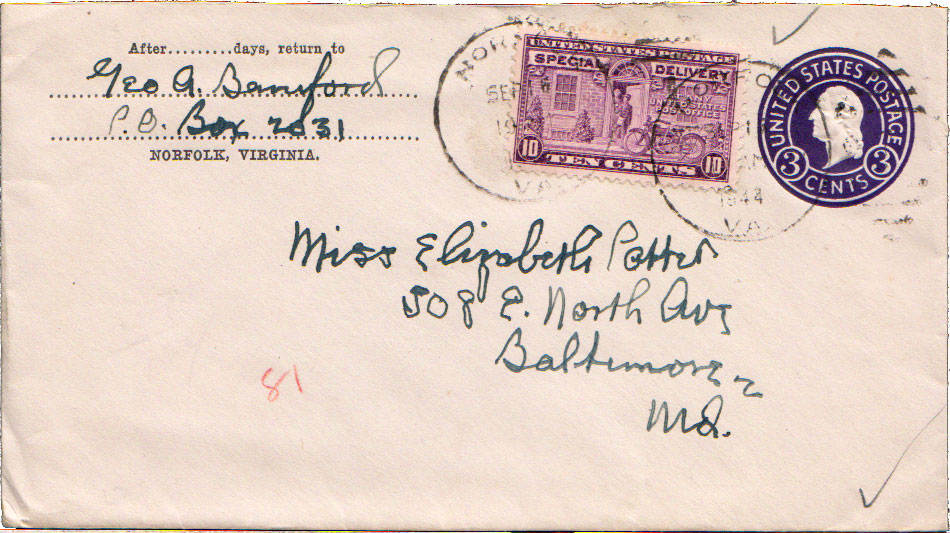 After.........days, return to
Geo A. Bamford
P.O. Box 2031
NORFOLK, VIRGINIA.
UNITED STATES POSTAGE
SPECIAL DELIVERY
AT ANY
UNITED STATES
POST OFFICE
10 TEN CENTS 10
NOR
SEP
19
VA.
AM
1944
VA.
UNITED STATES POSTAGE
3 CENTS 3
Miss Elizabeth Potter
508 E. North Ave
Baltimore 2
Md.
81